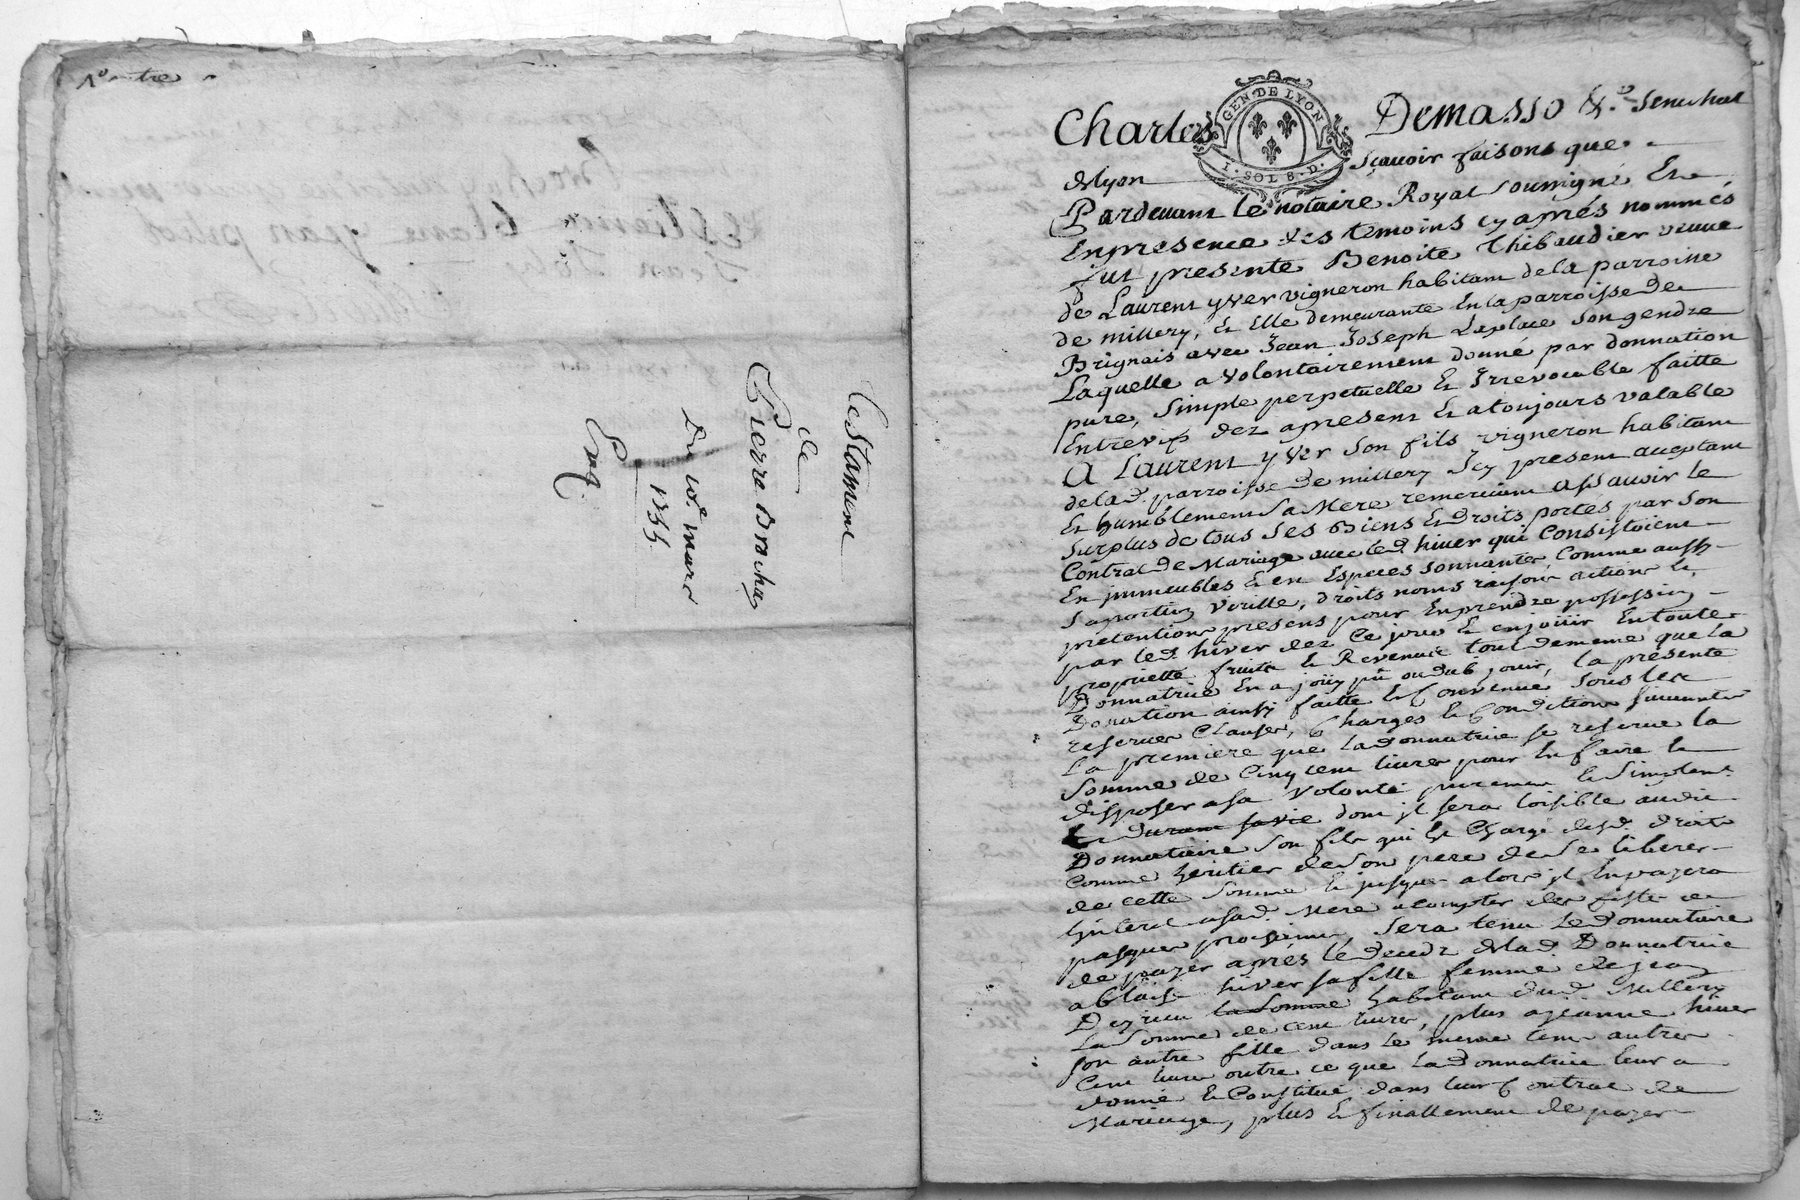 Testament
de
Pierre Brachay
Du 10e mars
1755.
GEN. DE LYON
I. SOL 8. D.
Charles Demasso &.a Senechal
de Lyon Sçavoir faisons que
Pardevant Le notaire Royal soussigné Et
En presence des temoins cy aprés nommés
fut presente Benoite Thibaudier veuve
de Laurent yver vigneron habitant de la parroisse
de millery, Et Elle demeurante En la parroisse de
Brignais avec Jean Joseph Laplace son gendre
Laquelle a volontairement donné par donnation
pure, simple perpetuelle Et Irrevocable faitte
Entrevifs dez apresent Et atoujours valable
A Laurent yver son fils vigneron habitant
de la d. parroisse de millery Icy present acceptant
Et humblement sa Mere remerciant assavoir le
surplus de tous ses Biens Et droits portés par son
Contrat de Mariage avec led. hiver qui Consistoient
En immeubles Et en Especes sonnantes, Comme aussy
sa portion virille, droits noms raisons actions Et
pretentions presens pour En prendre possession
par led. hiver dez Ce jour Et en joüir En toutte
proprieté fruits Et Revenus tout de meme que la
Donnatrice En a joüy pû ou dub jouir, la presente
Donation ainsy faitte Et Convenue sous les
reserves Clauses, Charges Et Conditions suivantes
La premiere que la donnatrice se reserve la
somme de Cinq cent livres pour En faire Et
disposer a sa volonté purement Et simplemt.
Et durant sa vie dont il sera loisible audit
Donnataire son fils qui Est Chargé desd. droits
Comme heritier de son pere de se liberer
de cette somme Et jusques alors il En payera
Linteret a sad. Mere a compter des festes de
pasques prochaines, sera tenu Le donnataire
de payer aprés Le decedz de lad. Donnatrice
a blaise hiver sa fille femme de jean
la somme habitant dud. Millery
La somme de cent livres, plus a jeanne hiver
son autre fille dans le meme tems autres
Cent livres outre ce que La donnatrice leur a
donné Et Constitué dans leur Contrat de
Mariage, plus Et finallement de payer